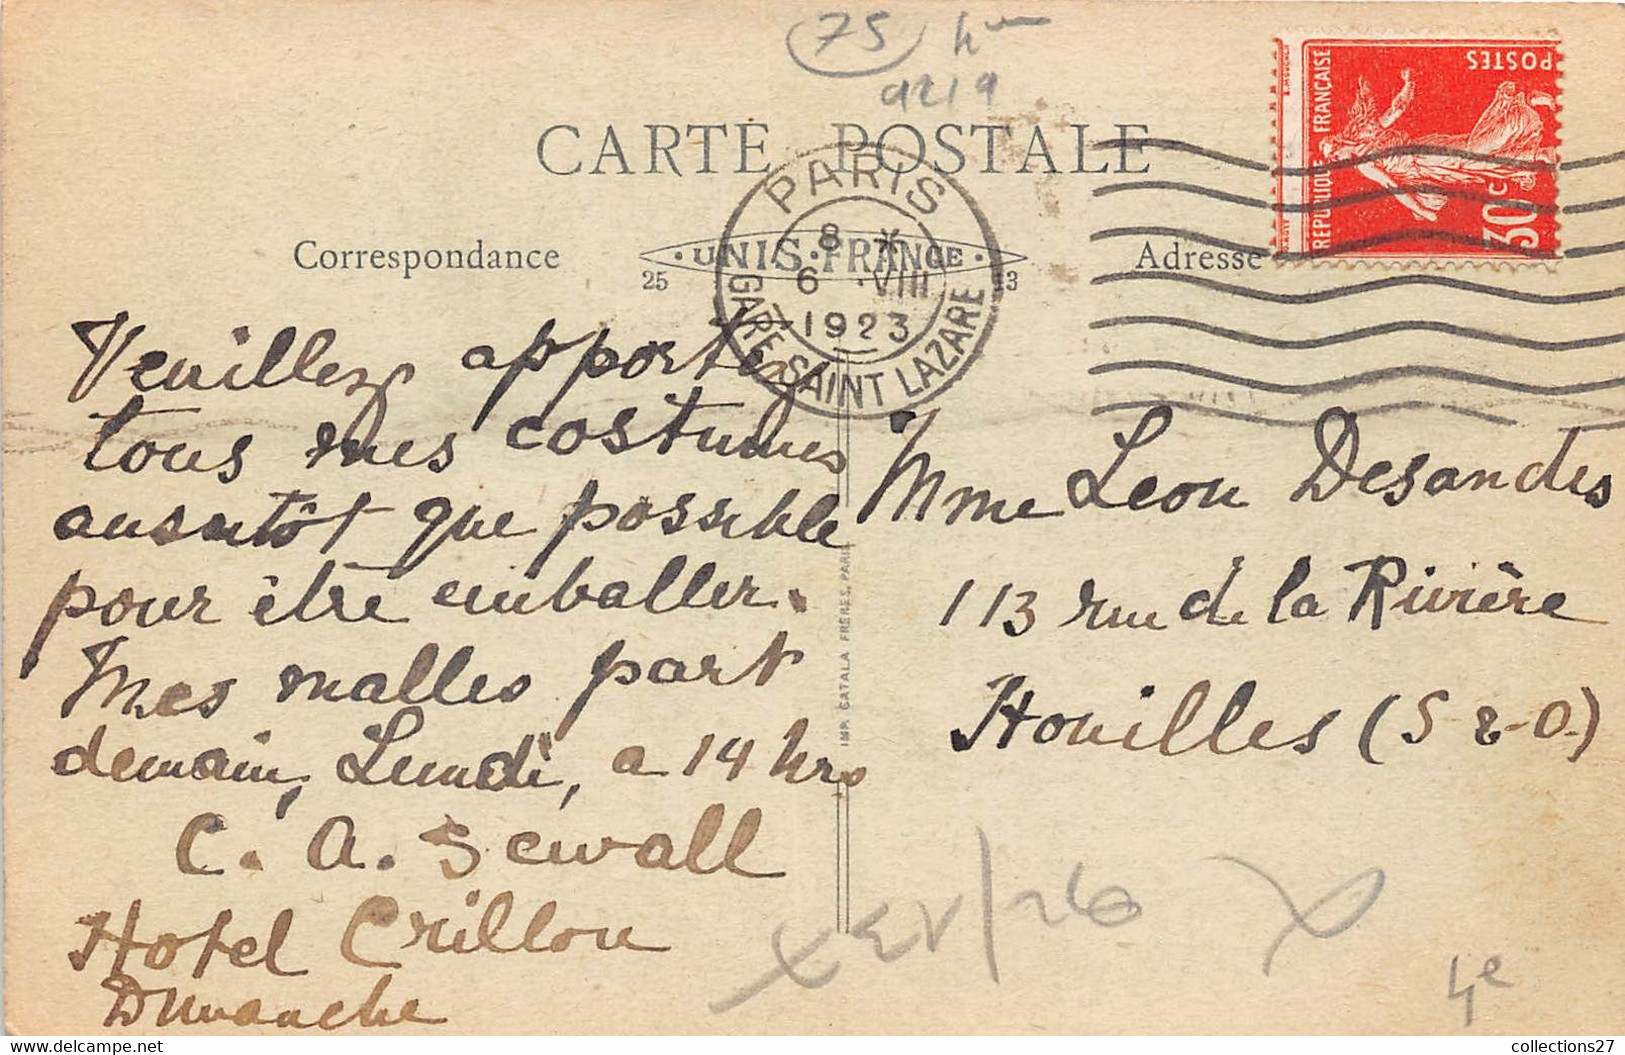 75
9219
CARTE POSTALE
POSTES
REPUBLIQUE FRANÇAISE
30c
PARIS
8 *
6 · VIII
1923
GARE SAINT LAZARE
Correspondance
· UNIS · FRANCE ·
25
13
Adresse
Veuillez apporter
tous mes costumes
aussitôt que possible
pour être emballer.
Mes malles part
demain, Lundi, a 14 hrs
C. A. Sewall
Hotel Crillon
Dimanche
IMP. CATALA FRÈRES, PARIS
Mme Leon Desandes
113 rue de la Rivière
Houilles (S & - O.)
4e
collections27